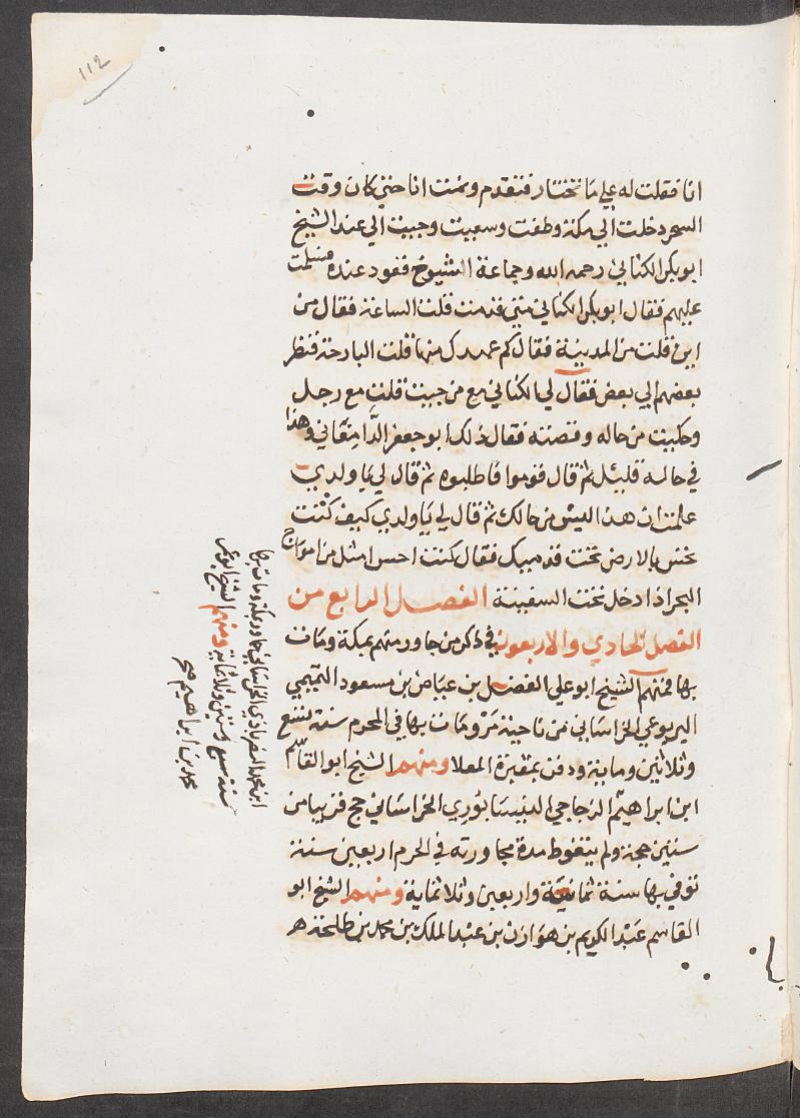 112
انا فقلت له علي ما تختار فتقدم ونمت انا حتي كان وقت
السحر دخلت الي مكة وطفت وسعيت وجيت الي عند الشيخ
ابو بكر الكتاني رحمه الله وجماعة الشيوخ قعود عنده فسلمت
عليهم فقال ابو بكر الكتاني متي قدمت قلت الساعة فقال من
اين قلت من المدينة فقال كم عهدك منها قلت البارحة فنظر
بعضهم الي بعض فقال لي الكتاني مع من جيت قلت مع رجل
وحكيت من حاله وقصته فقال ذلك ابو جعفر الدامغاني وهذا
في حاله قليل ثم قال قوموا فاطلبوه ثم قال لي يا ولدي
علمت ان هذا ليس من حالك ثم قال لي يا ولدي كيف كنت
تحس بالارض تحت قدميك فقال كنت احس مثل من امواج
البحر اذا دخل تحت السفينة الفصل الرابع من
الفصل الحادي والاربعون في ذكر من جاور منهم بمكة ومات
بها فمنهم الشيخ ابو علي الفضل بن عياض بن مسعود التميمي
اليربوعي الخراساني من ناحية مرو مات بها في المحرم سنة تسع
وثلاثين وماية ودفن بمقبرة المعلا ومنهم الشيخ ابو القاسم
ابن ابراهيم الزجاجي النيسابوري الخراساني حج قريبا من
ستين حجة ولم يتغوط مدة مجاورته في الحرم اربعين سنة
توفي بها سنة ثمانية واربعين وثلاثماية ومنهم الشيخ ابو
القاسم عبد الكريم بن هوازن بن عبد الملك بن محمد بن طلحة
ابن محمد الخراساني جاور بمكة ومات بها
سنة سبع وستين وثلاثماية ومنهم الشيخ ابو
محمد بن ابراهيم صح